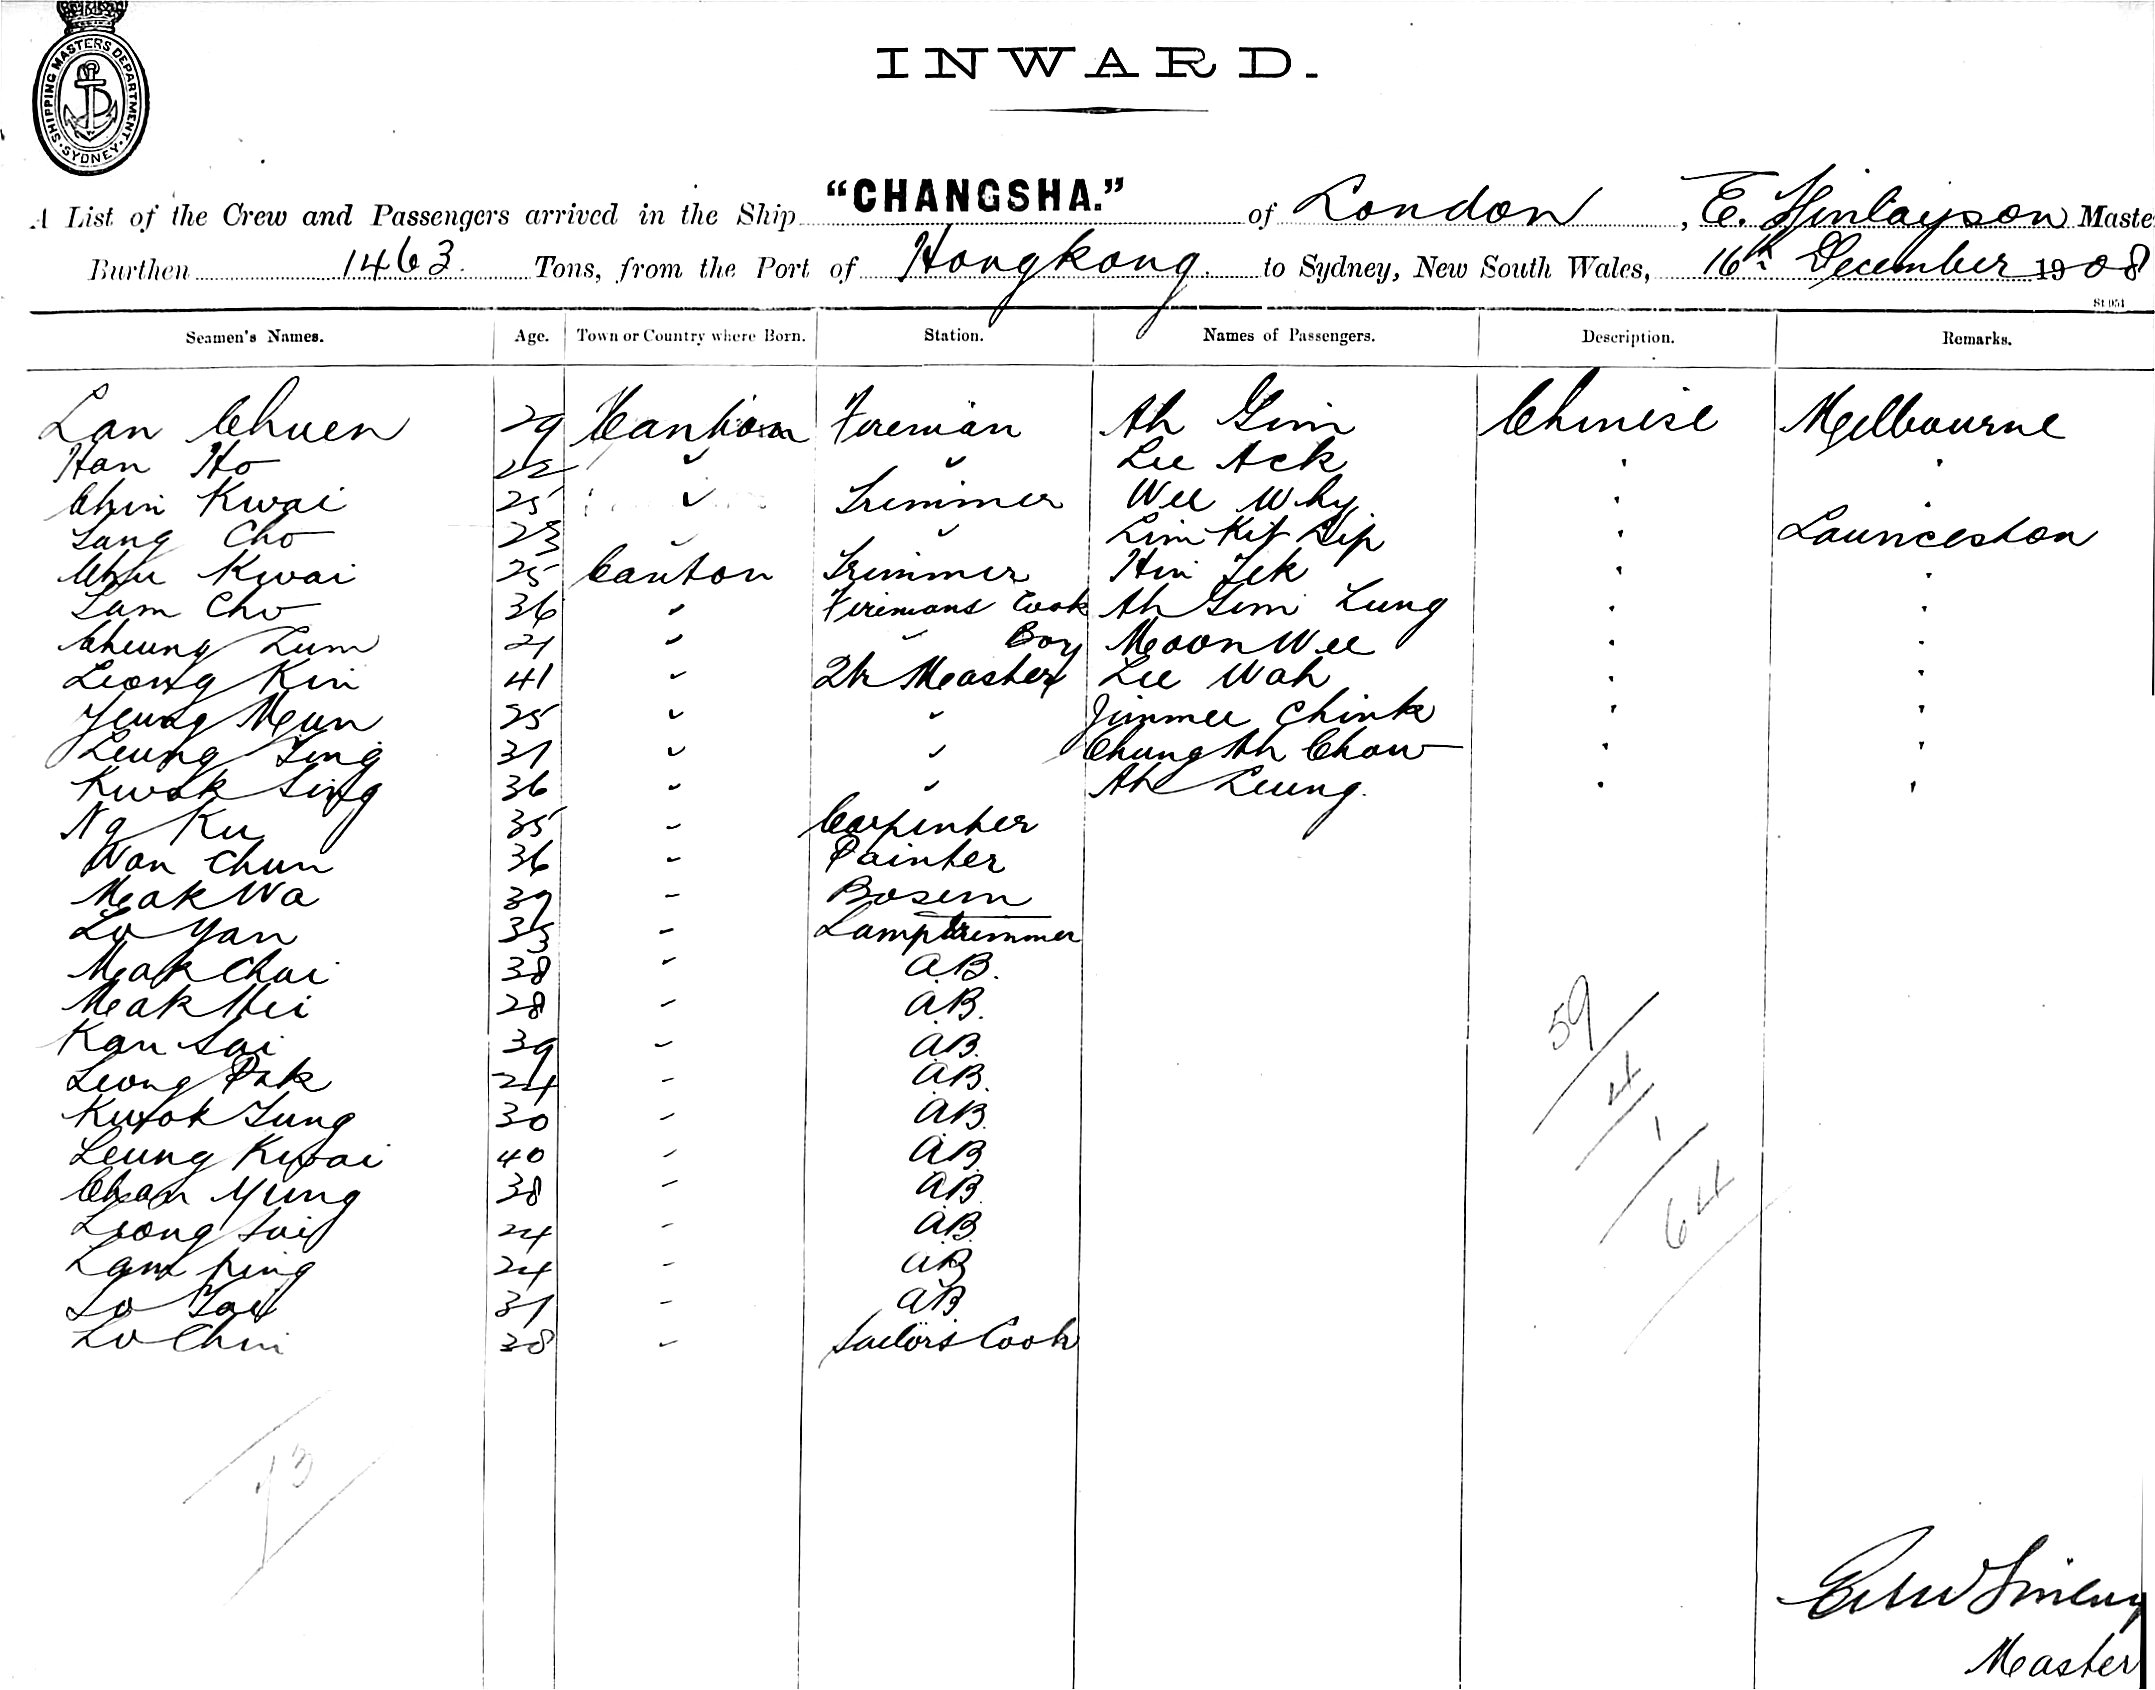 SHIPPING MASTERS DEPARTMENT SYDNEY
INWARD.
A List of the Crew and Passengers arrived in the Ship "CHANGSHA." of London, E. Finlayson Maste
Burthen 1463 Tons, from the Port of Hongkong to Sydney, New South Wales, 16th December 1908
St 051
Seamen's Names. Age. Town or Country where Born. Station. Names of Passengers. Description. Remarks.
Lan Chuen 29 Canton Fireman Ah Gim Chinese Melbourne
Han Ho 22 " " Lee Ack " "
Chin Kwai 25 " Trimmer Wee Why " "
Tang Cho 23 " " Lim Kit Sip " Launceston
Chu Kwai 25 Canton Trimmer Hin Tek " "
Lam Cho 36 " Firemans Cook Ah Gim Lung " "
Cheung Lum 21 " " Boy Moon Wee " "
Leong Kin 41 " 2tr Master Lee Wah " "
Yeung Mun 25 " " Jimmee Chink " "
Leung Sing 31 " " Chung Ah Chow " "
Kwok Sing 36 " " Ah Leung. " "
Ng Ku 35 " Carpenter
Wan Chun 36 " Painter
Mak Wa 39 " Bosern
Lo Yan 33 " Lamptrimmer
Mak Chai 38 " A.B.
Mak Hei 28 " A.B.
Kan Sai 39 " A.B.
Leong Pak 24 " A.B.
Kwok Tung 30 " A.B.
Leung Kwai 40 " A.B.
Chan Yung 38 " A.B.
Leong Sui 24 " A.B.
Lam King 24 " A.B
Lo Tai 31 " A.B
Lo Chin 38 " Sailors Cook
59
4
1
64
13
Master